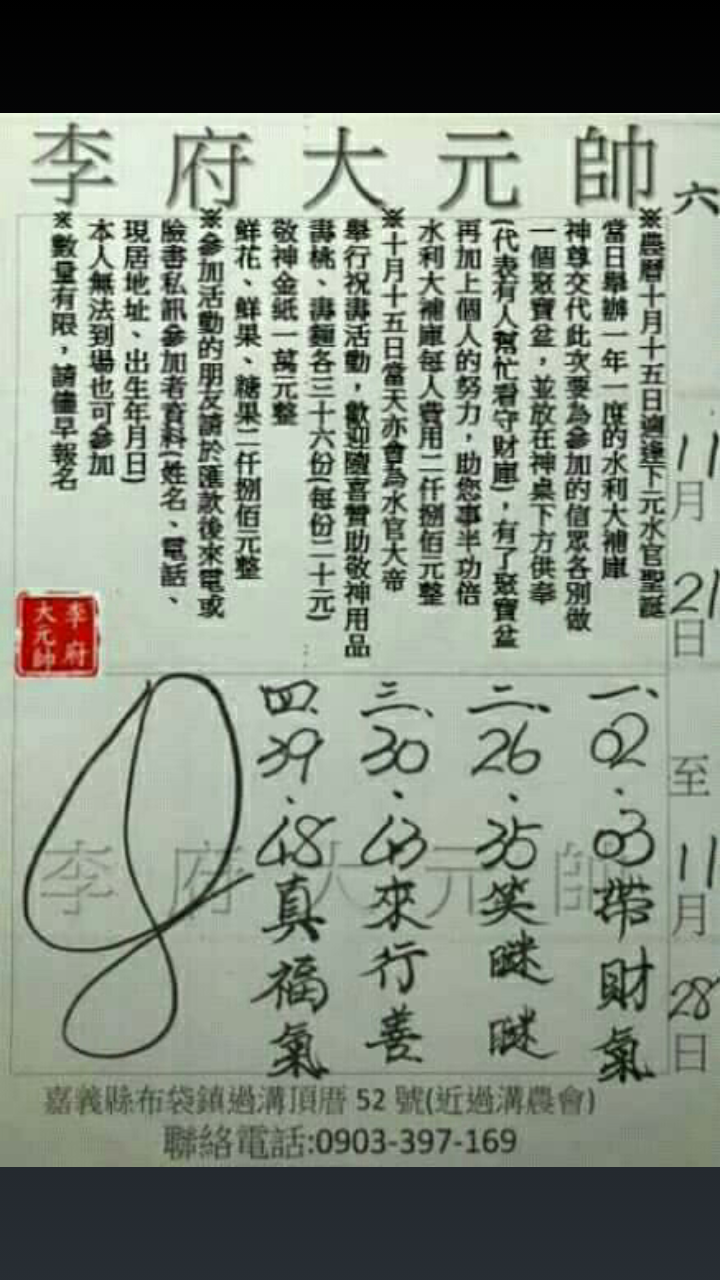 李府大元帥
六
11月21日至11月28日
※農曆十月十五日適逢下元水官聖誕
當日舉辦一年一度的水利大補庫
神尊交代此次要為參加的信眾各別做
一個聚寶盆，並放在神桌下方供奉
(代表有人幫忙看守財庫)，有了聚寶盆
再加上個人的努力，助您事半功倍
水利大補庫每人費用二仟捌佰元整
※十月十五日當天亦會為水官大帝
舉行祝壽活動，歡迎隨喜贊助敬神用品
壽桃、壽麵各三十六份(每份二十元)
敬神金紙一萬元整
鮮花、鮮果、糖果二仟捌佰元整
※參加活動的朋友請於匯款後來電或
臉書私訊參加者資料(姓名、電話、
現居地址、出生年月日)
本人無法到場也可參加
※數量有限，請儘早報名
李府
大元帥
一、02.03帶財氣
二、26.35笑瞇瞇
三、30.43來行善
四、39.48真福氣
李府大元帥
嘉義縣布袋鎮過溝頂厝 52 號(近過溝農會)
聯絡電話:0903-397-169